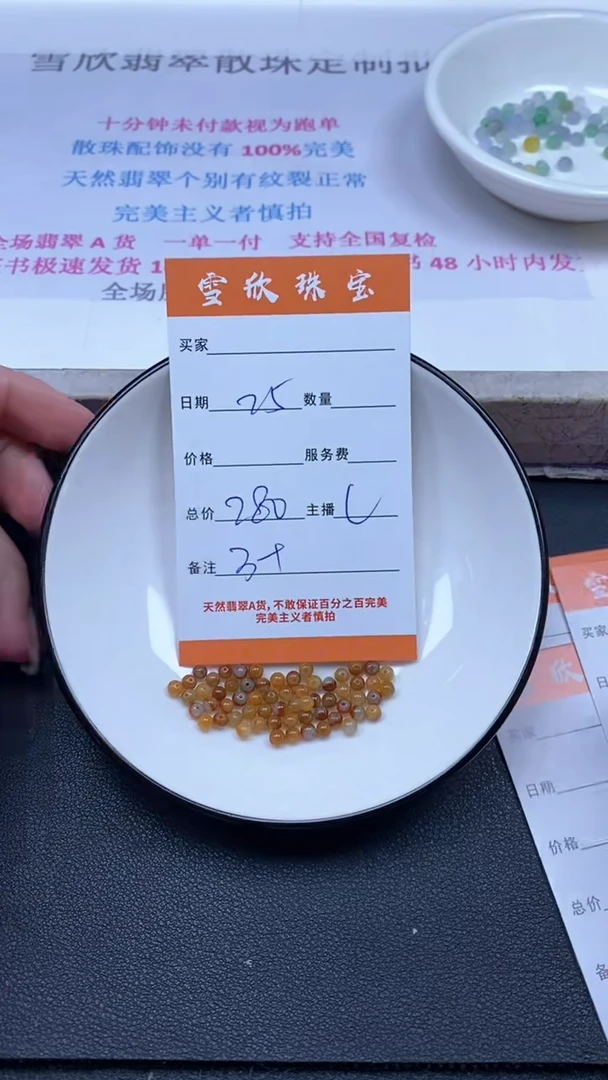 雪欣翡翠散珠定制批
十分钟未付款视为跑单
散珠配饰没有 100%完美
天然翡翠个别有纹裂正常
完美主义者慎拍
全场翡翠 A 货 一单一付 支持全国复检
证书极速发货 1
书 48 小时内发
全场
雪欣珠宝
买家
日期 25 数量
价格 服务费
总价 280 主播 L
备注
天然翡翠A货，不敢保证百分之百完美
完美主义者慎拍
买家
日期
价格
总价